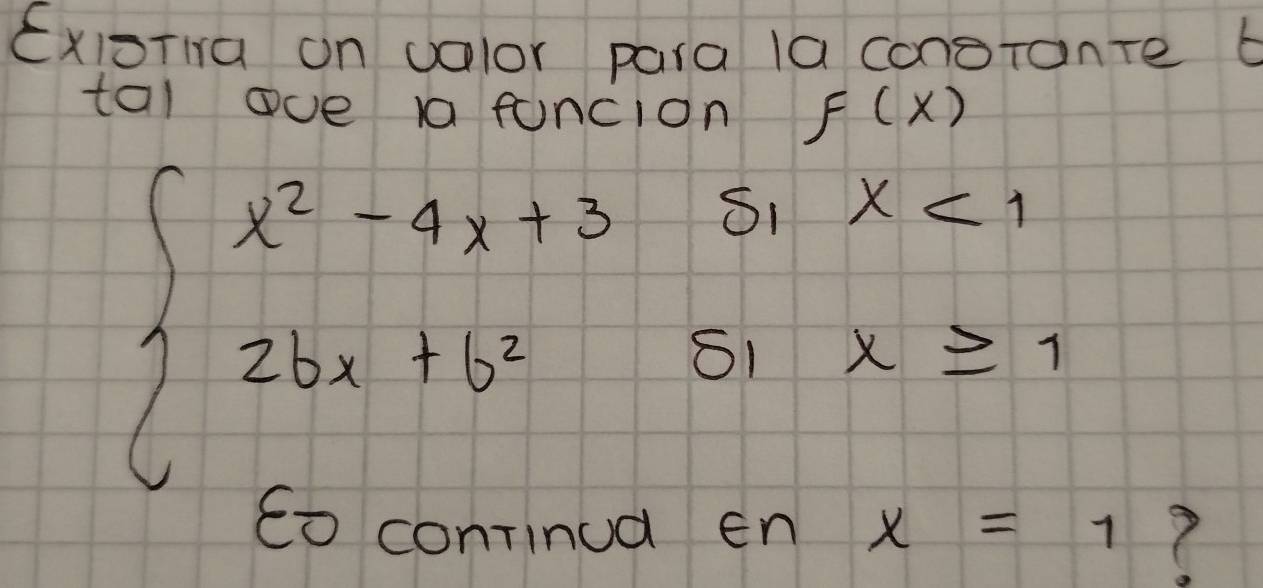 Existira un valor para la constante b
tal que la funcion F(x)
x² - 4x + 3 si x < 1
2bx + b² si x ≥ 1
Es continua en x = 1?